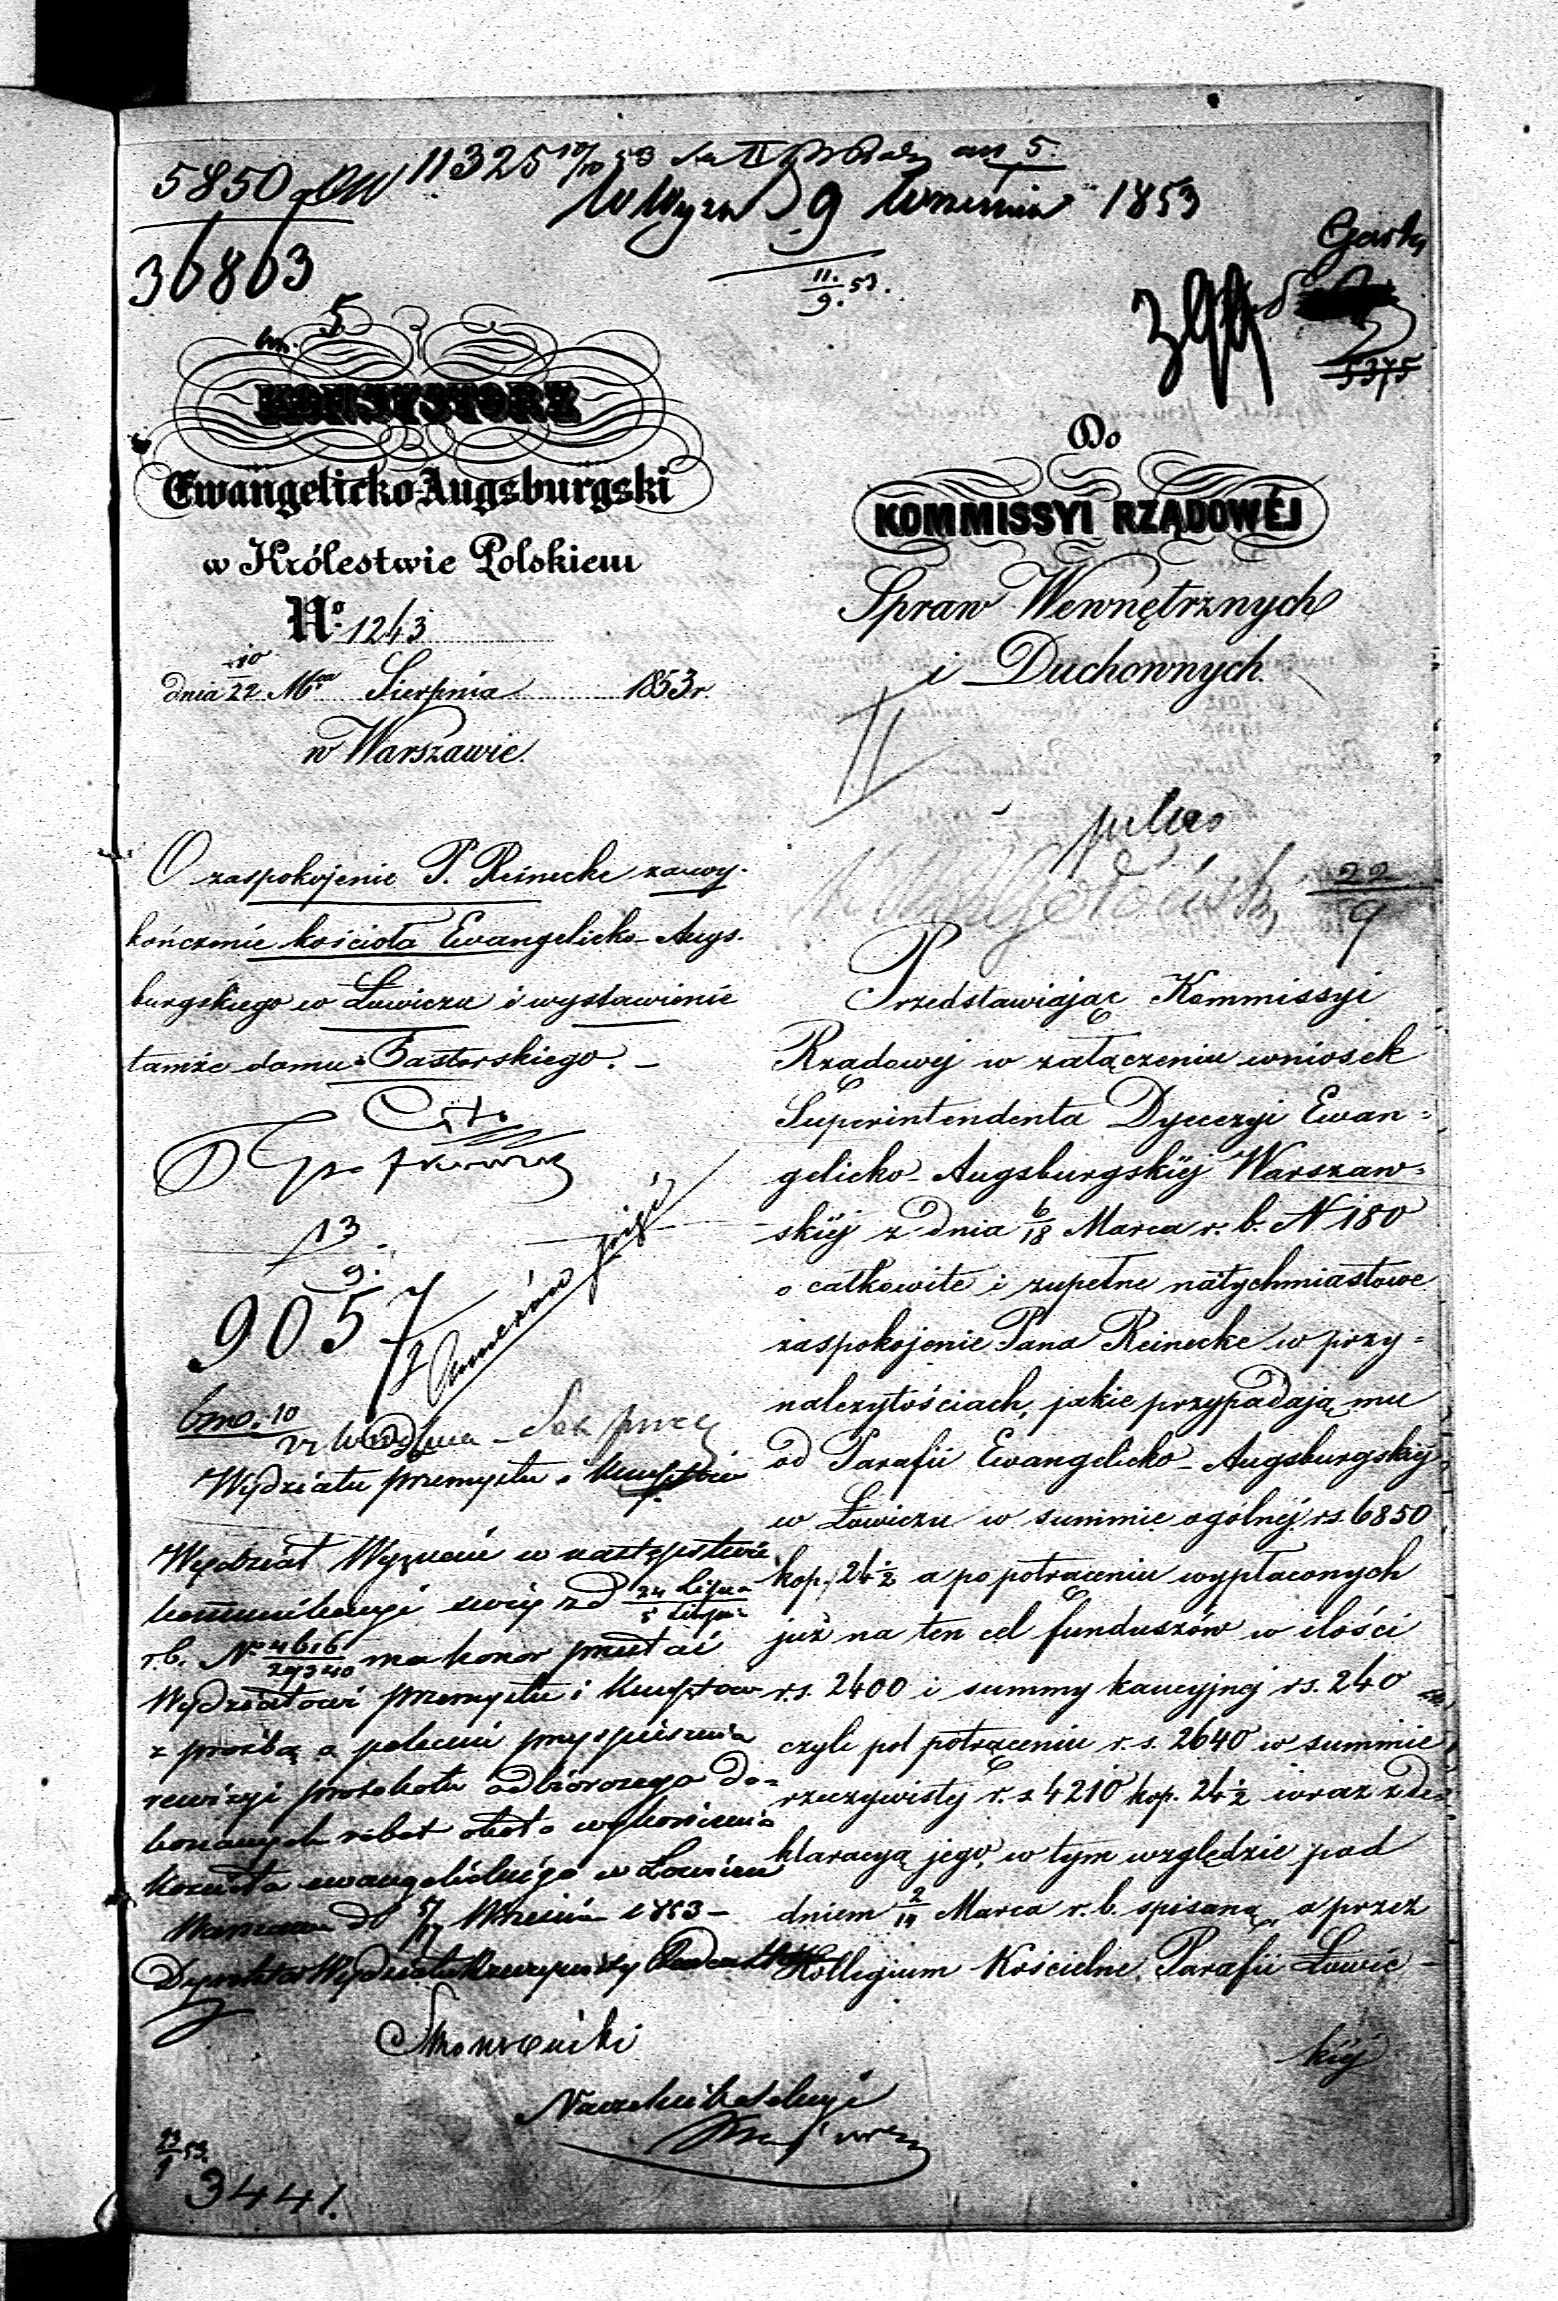 5850
11325 10/10 53
W Wyzn D 9 Września 1853
36863
11./9. 53.
5
5375
KONSYSTORZ
Ewangelicko-Augsburgski
w Królestwie Polskiem
No. 1243
dnia 10/22 Mca Sierpnia 1853 r.
w Warszawie.
O zaspokojenie P. Reinecke za wy-
kończenie kościoła Ewangelicko-Augs-
burgskiego w Łowiczu i wystawienie
tamże domu Pastorskiego. –
Cito
13/9.
9057
Wydziału przemysłu i Kunsztów
Wydział Wyznań w następstwie
komunikacyi swej z d
r. b. No 4616/29340 ma honor przesłać
Wydziałowi przemysłu i Kunsztów
z prośbą o polecenie przyspieszenia
rewizyi protokołu odbiorczego do-
konanych robót około wykończenia
Kościoła ewangelickiego w Łowiczu
Warszawa d 5/17 Września 1853 –
Dyrektor Wydziału Rzeczywisty Radca
Naczelnik Sekcyi
3441.
Do
KOMMISSYI RZĄDOWÉJ
Spraw Wewnętrznych
i Duchownych.
pilno
22/9
Przedstawiając Kommissyi
Rządowej w załączeniu wniosek
Superintendenta Dyecezyi Ewan-
gelicko-Augsburgskiej Warszaw-
skiej z dnia 6/18 Marca r. b. N 180
o całkowite i zupełne natychmiastowe
zaspokojenie Pana Reinecke w przy-
należytościach, jakie przypadają mu
od Parafii Ewangelicko-Augsburgskiej
w Łowiczu w summie ogólnej rs. 6850
kop. 24½ a po potrąceniu wypłaconych
już na ten cel funduszów w ilości
r.s. 2400 i summy kaucyjnej rs. 240
czyli po potrąceniu r. s. 2640 w summie
rzeczywistej r. s. 4210 kop. 24½ wraz z de-
klaracyą jego, w tym względzie pod
dniem 2/14 Marca r. b. spisaną, a przez
Kollegium Kościelne Parafii Łowic-
kiej